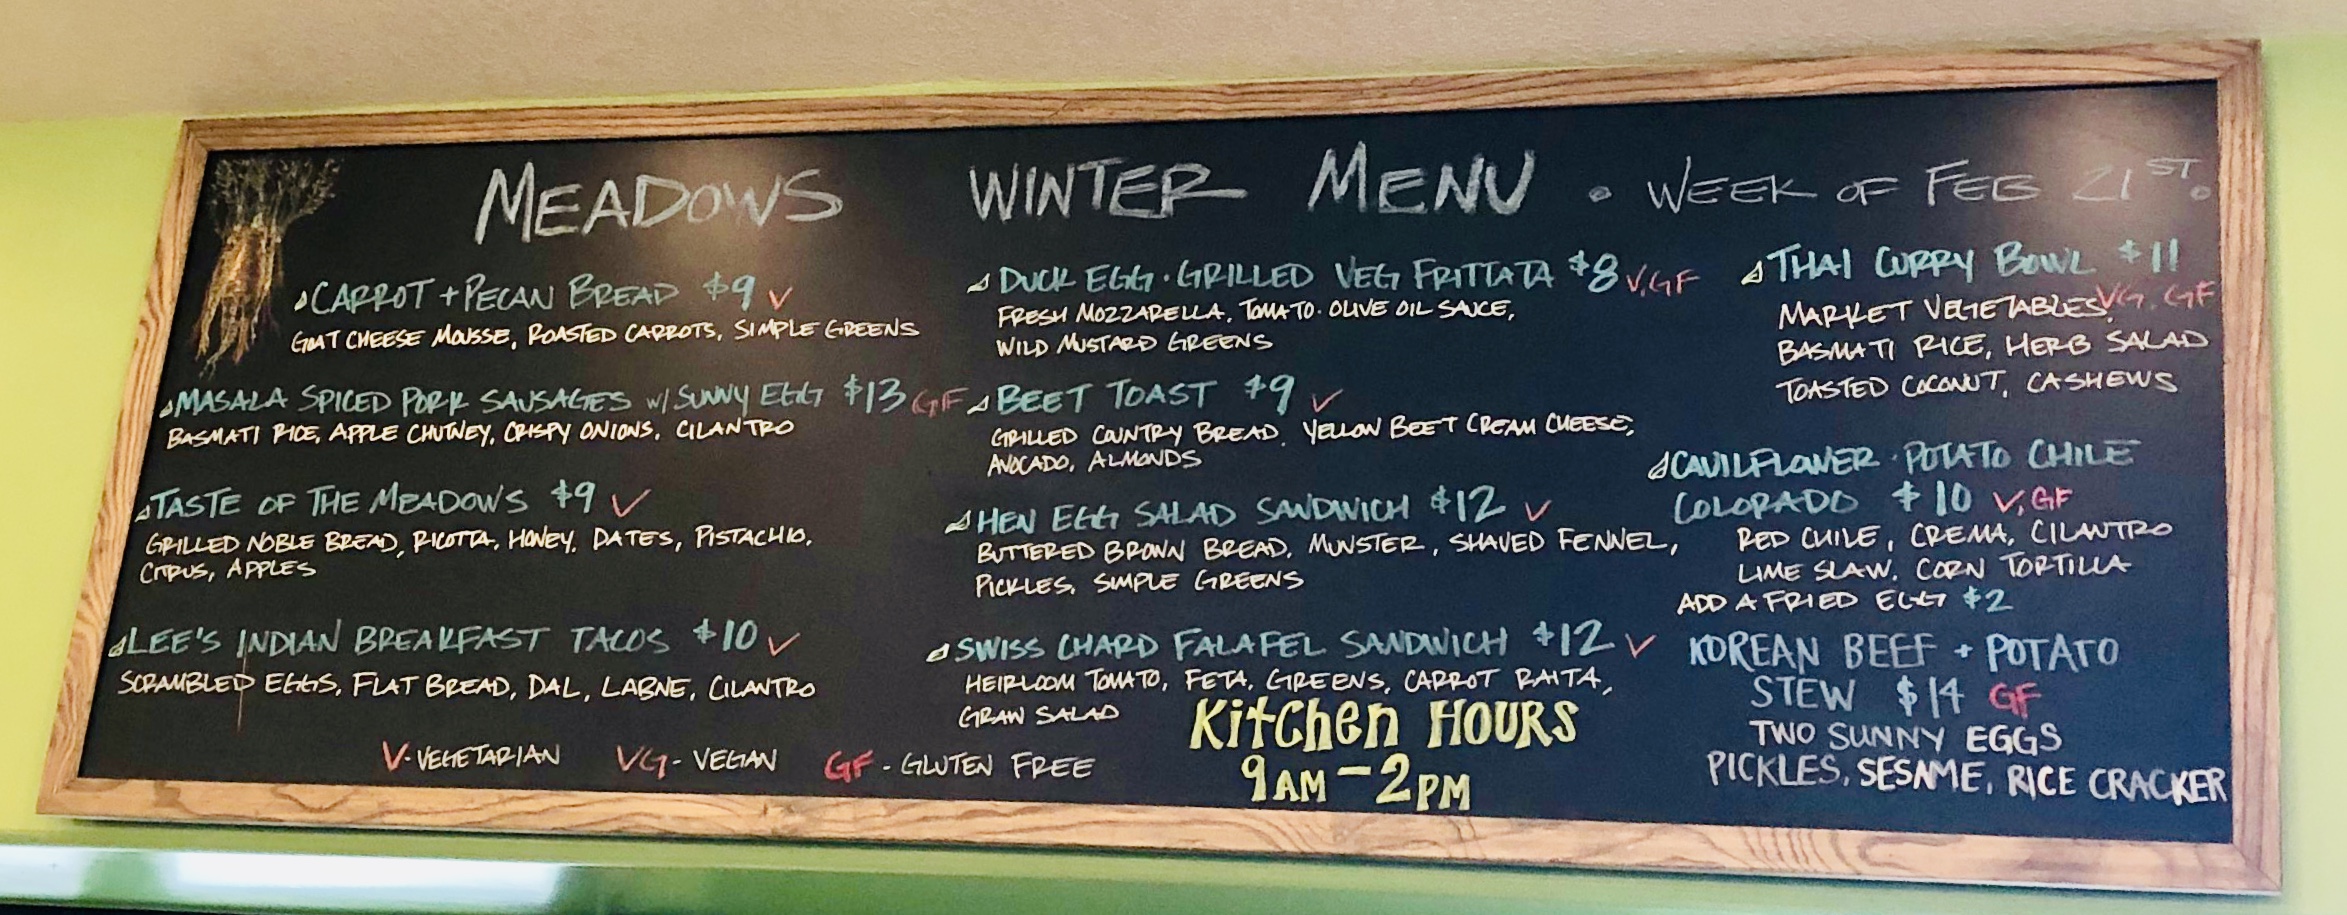 MEADOWS WINTER MENU • WEEK OF FEB 21ST.
CARROT + PECAN BREAD $9 V
GOAT CHEESE MOUSSE, ROASTED CARROTS, SIMPLE GREENS
MASALA SPICED PORK SAUSAGES W/ SUNNY EGG $13 GF
BASMATI RICE, APPLE CHUTNEY, CRISPY ONIONS, CILANTRO
TASTE OF THE MEADOWS $9 V
GRILLED NOBLE BREAD, RICOTTA, HONEY, DATES, PISTACHIO,
CITRUS, APPLES
LEE'S INDIAN BREAKFAST TACOS $10 V
SCRAMBLED EGGS, FLAT BREAD, DAL, LABNE, CILANTRO
V - VEGETARIAN VG - VEGAN GF - GLUTEN FREE
DUCK EGG • GRILLED VEG FRITTATA $8 V, GF
FRESH MOZZARELLA, TOMATO • OLIVE OIL SAUCE,
WILD MUSTARD GREENS
BEET TOAST $9 V
GRILLED COUNTRY BREAD, YELLOW BEET CREAM CHEESE,
AVOCADO, ALMONDS
HEN EGG SALAD SANDWICH $12 V
BUTTERED BROWN BREAD, MUNSTER, SHAVED FENNEL,
PICKLES, SIMPLE GREENS
SWISS CHARD FALAFEL SANDWICH $12 V
HEIRLOOM TOMATO, FETA, GREENS, CARROT RAITA,
GRAW SALAD
KitCHen HOURS
9AM - 2PM
THAI CURRY BOWL $11
MARKET VEGETABLES, VG, GF
BASMATI RICE, HERB SALAD
TOASTED COCONUT, CASHEWS
CAUILFLOWER • POTATO CHILE
COLORADO $10 V, GF
RED CHILE, CREMA, CILANTRO
LIME SLAW, CORN TORTILLA
ADD A FRIED EGG $2
KOREAN BEEF + POTATO
STEW $14 GF
TWO SUNNY EGGS
PICKLES, SESAME, RICE CRACKER